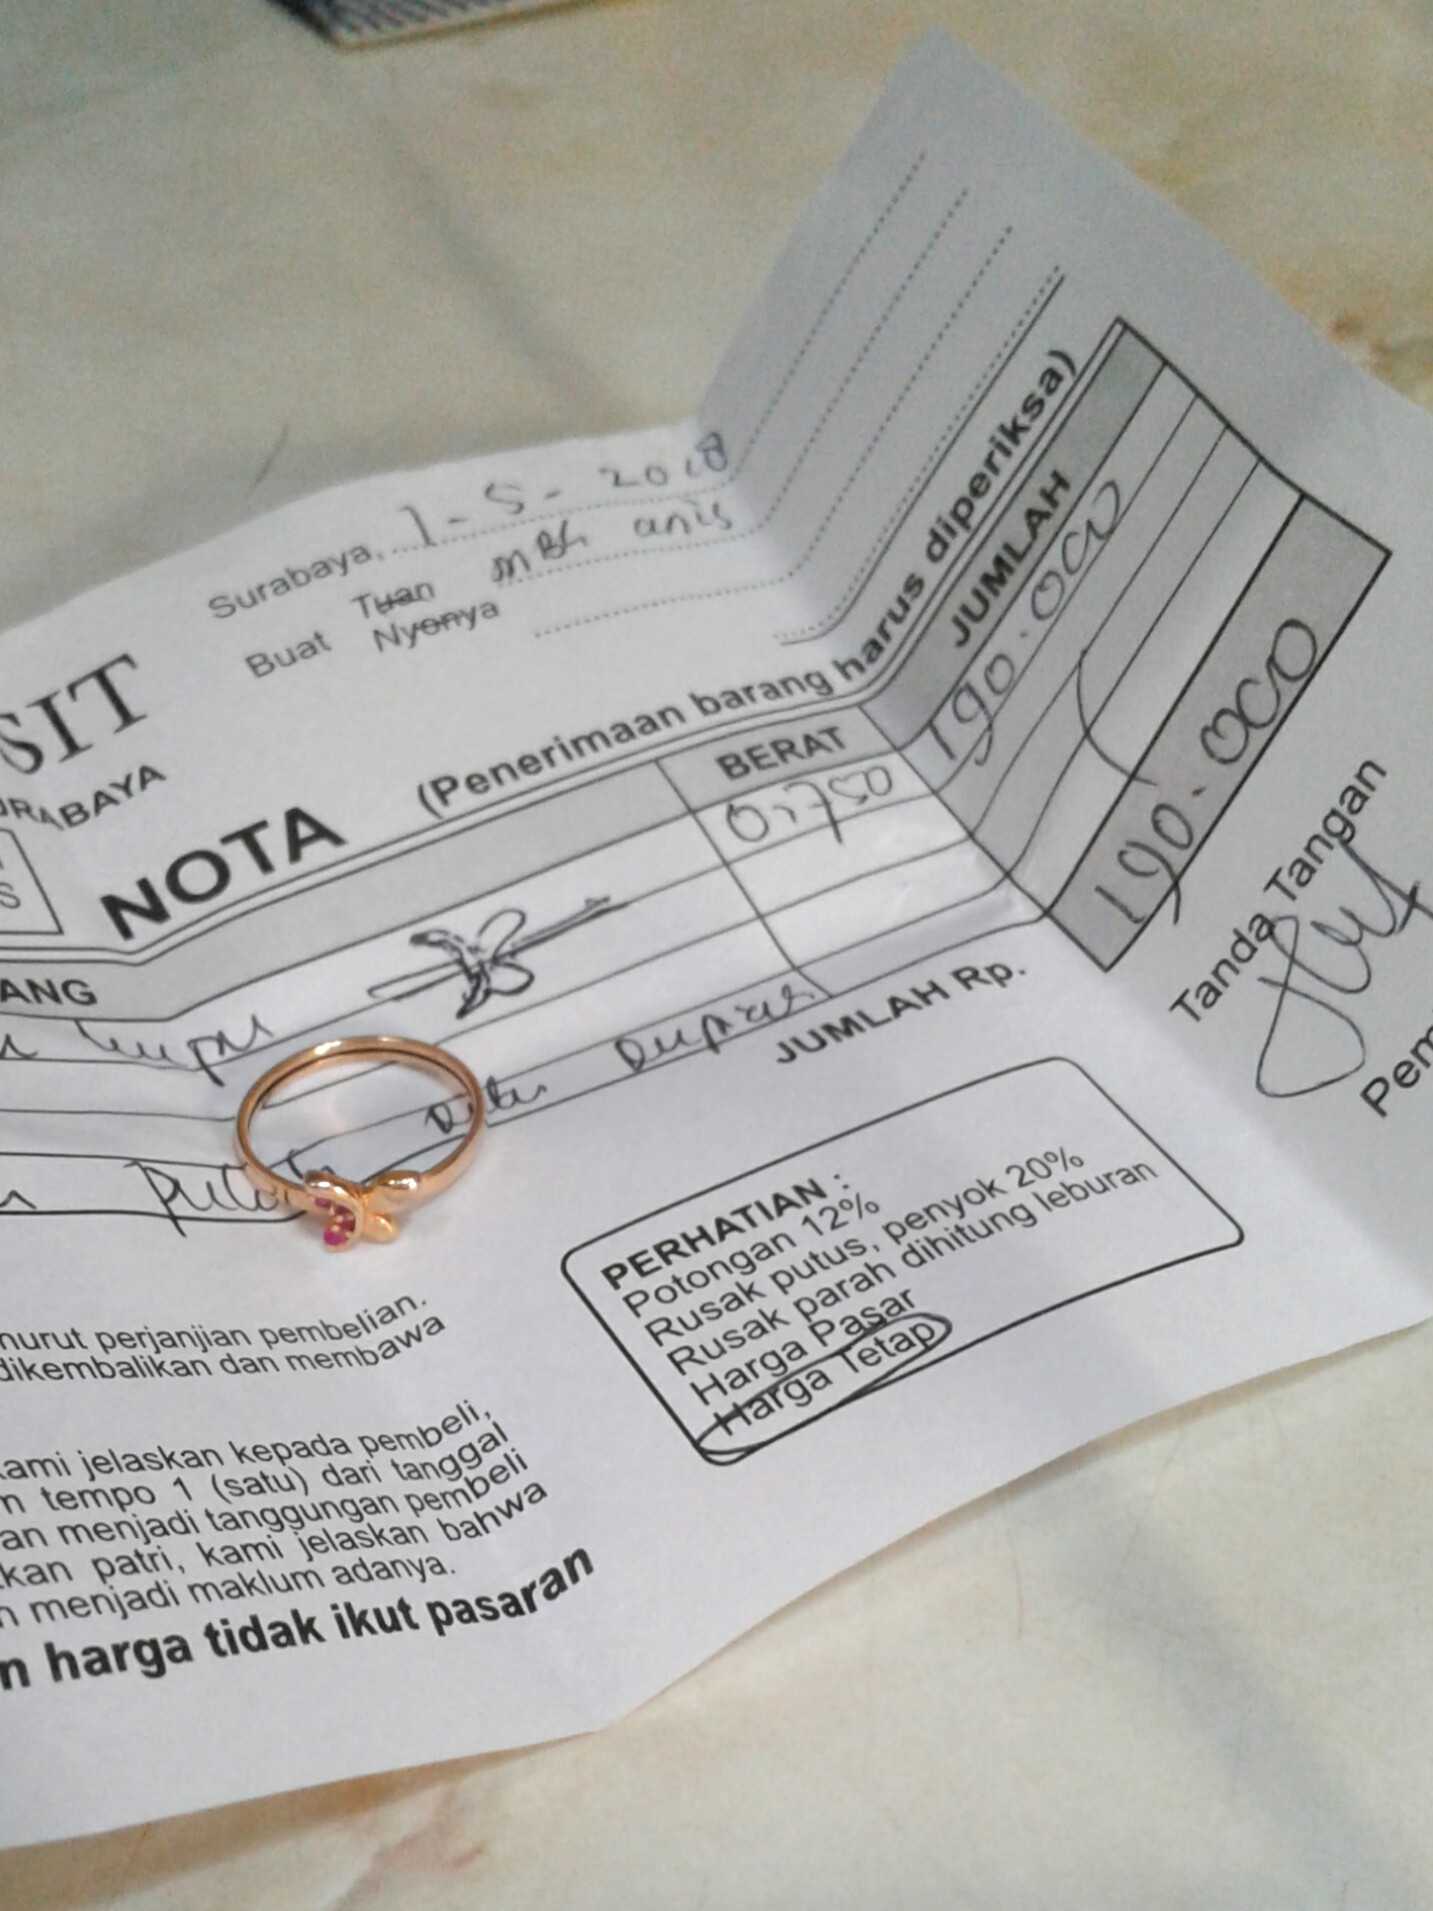 Surabaya, 1 - 5 - 2018
Buat Tuan mbk anis
Nyonya
SIT
RABAYA
S
NOTA (Penerimaan barang harus diperiksa)
ANG BERAT JUMLAH
kupu 0,750 190.000
JUMLAH Rp. 190.000
Tanda Tangan
Pem
PERHATIAN :
Potongan 12%
Rusak putus, penyok 20%
Rusak parah dihitung leburan
Harga Pasar
Harga Tetap
nurut perjanjian pembelian.
dikembalikan dan membawa
ami jelaskan kepada pembeli,
n tempo 1 (satu) dari tanggal
an menjadi tanggungan pembeli
kan patri, kami jelaskan bahwa
n menjadi maklum adanya.
n harga tidak ikut pasaran